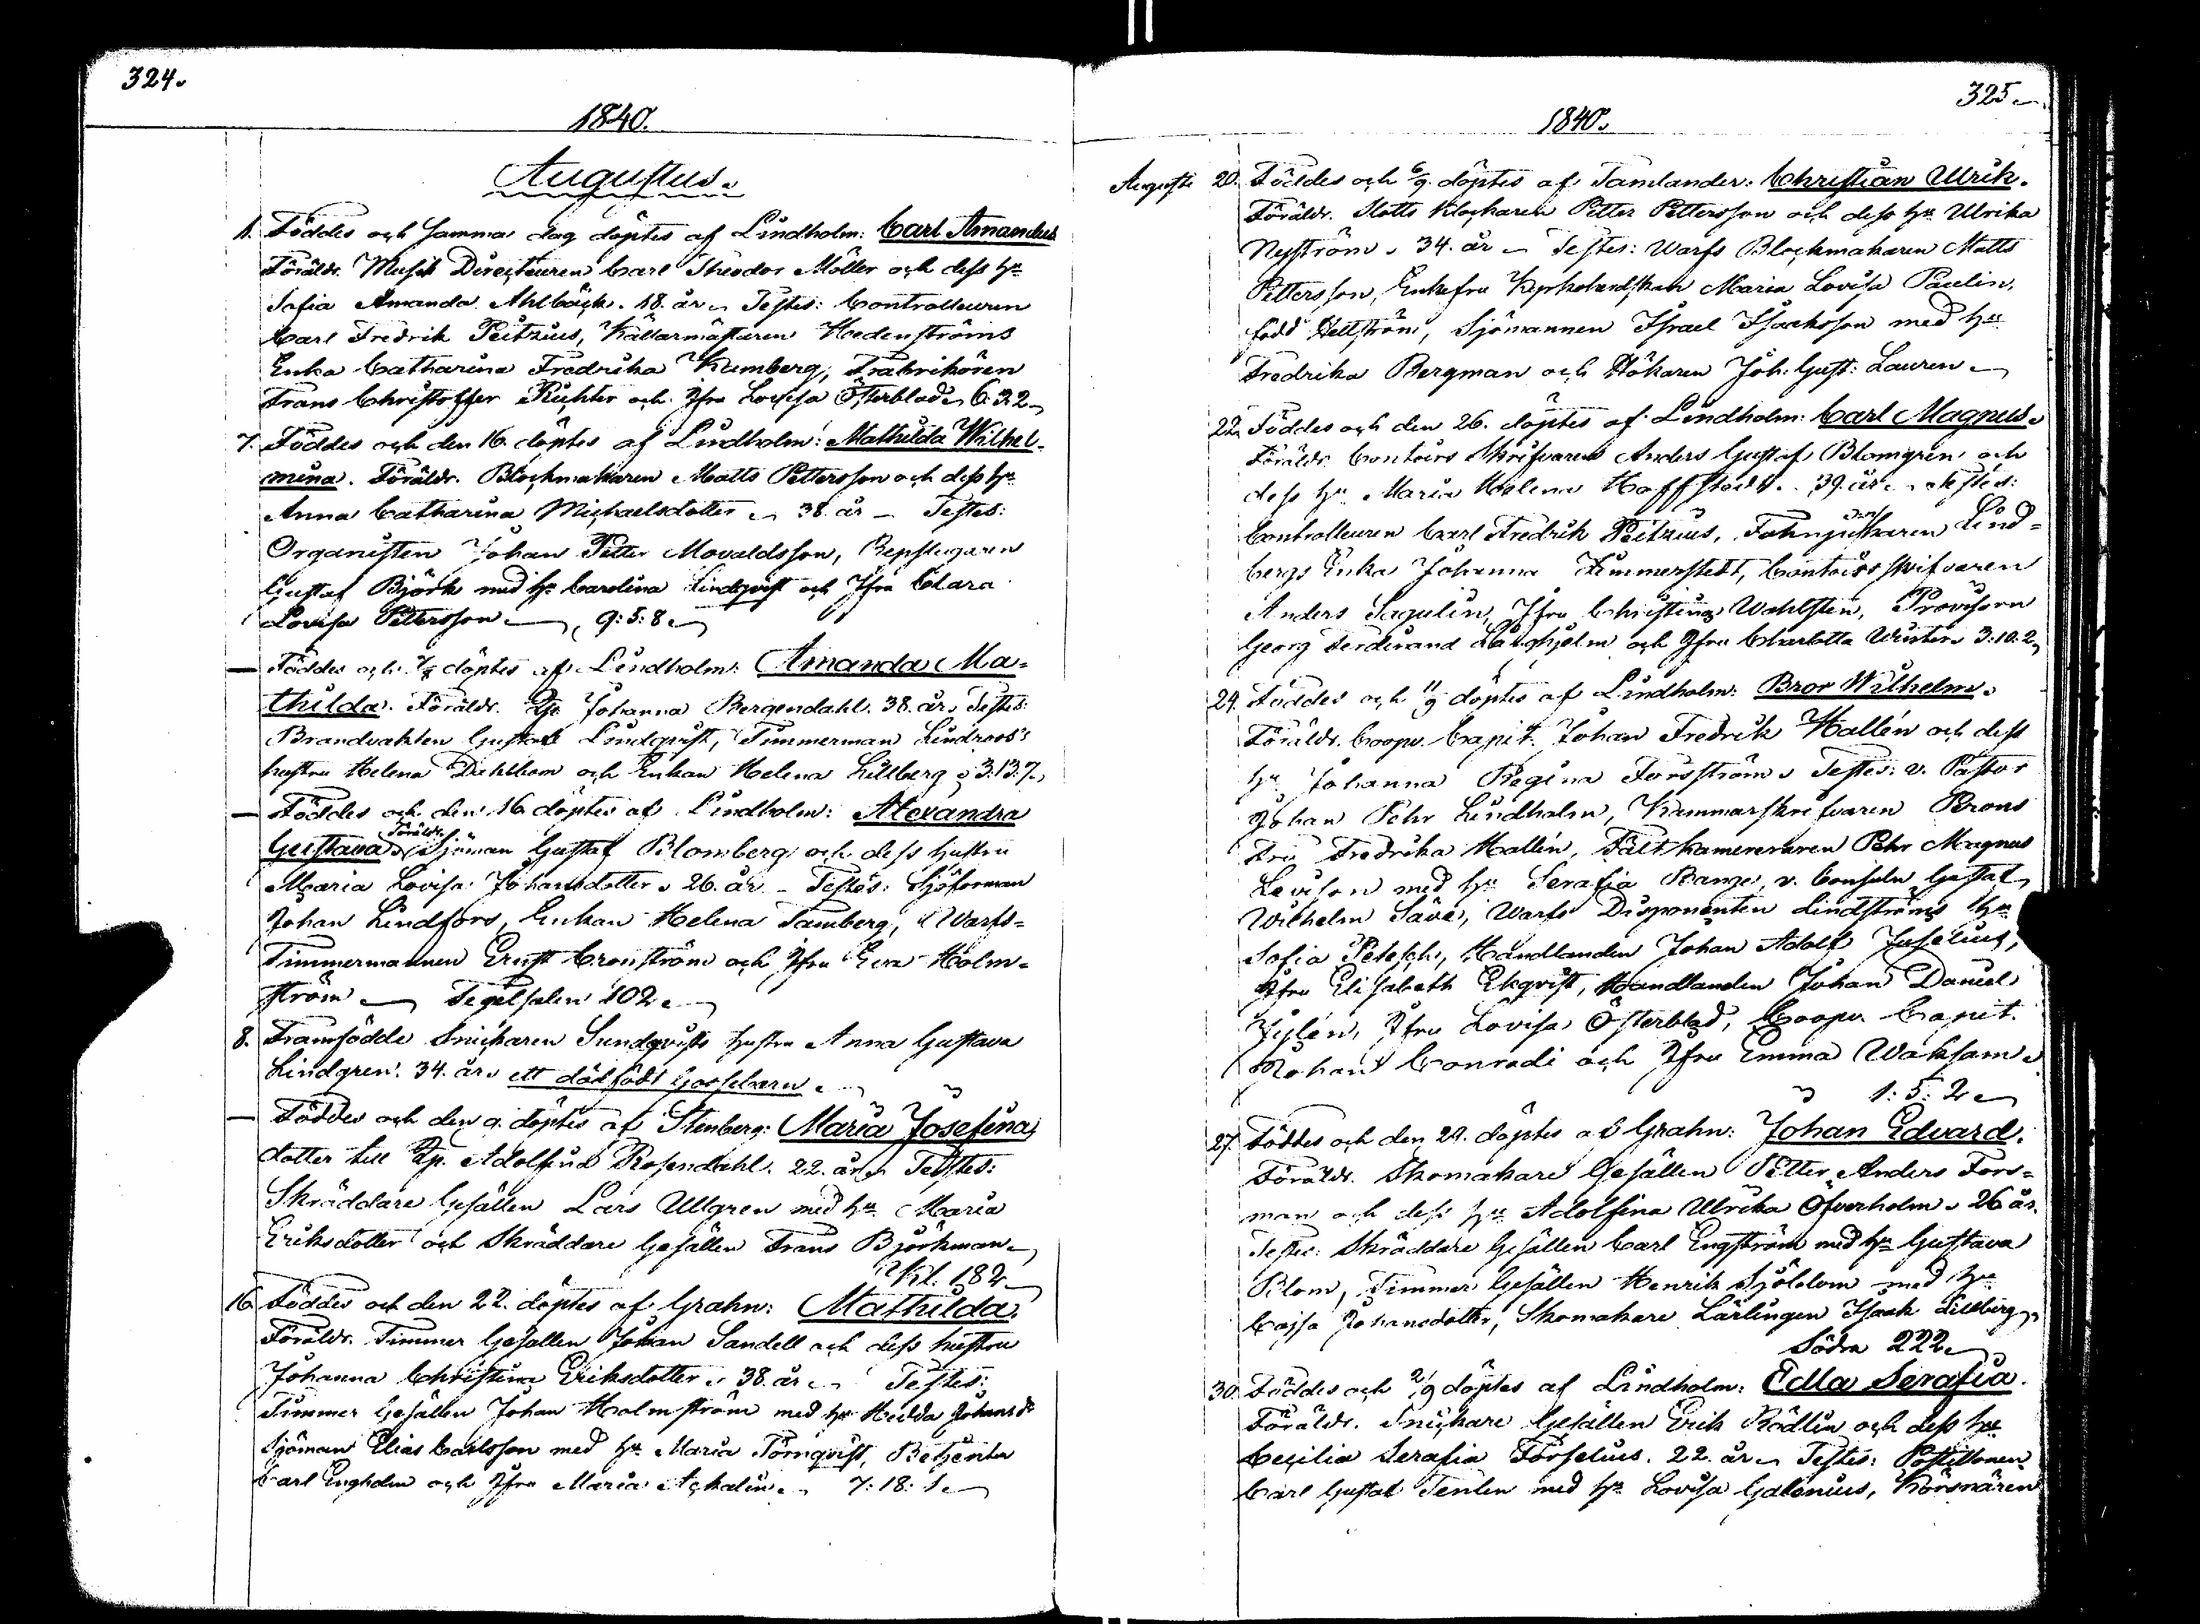 324.
1840.
Augustus.
1. Föddes och samma dag döptes af Lindholm: Carl Amandus
Föräldr. Musik Directeuren Carl Theodor Möller och dess hu
Sofia Amanda Ahlbäck. 18. år. Testes: Controlleuren
Carl Fredrik Peitzius, Källarmästaren Hedenströms
Enka Catharina Fredrika Kumberg, Frabrikören
Frans Christoffer Richter och Jfru Lovisa Österblad. 6.3.2.
7. Föddes och den 16. döptes af Lindholm: Mathilda Wilhel-
mina. Föräldr. Blockmakaren Matts Pettersson och dess hu
Anna Catharina Michaelsdotter. 38. år – Testes:
Organisten Johan Petter Movaldsson, Repslagaren
Gustaf Björk med hu Carolina Lindqvist och Jfru Clara
Lovisa Pettersson. 9:5:8.
— Föddes och döptes af Lindholm: Amanda Ma-
thilda. Föräldr. Johanna Bergendahl. 38. år. Testes:
Brandvakten Gustaf Lindqvist, Timmerman Lindroos's
hustru Helena Dahlbom och Enkan Helena Lillberg. 3.13.7.
— Föddes och den 16 döptes af Lindholm: Alexandra
Gustava. Föräldr. Sjöman Gustaf Blomberg och dess hustru
Maria Lovisa Johansdotter. 26. år – Testes: Sjöforman
Johan Lindfors, Enkan Helena Tamberg, Warfs-
Timmermannen Ernst Cronström och Jfru Eva Holm-
ström. Tegelsalen 102.
8. Framfödde Snickaren Sundqvists hustru Anna Gustava
Lindgren. 34. år. ett dödfödt Gossebarn.
— Föddes och den 9. döptes af Stenberg: Maria Josefina,
dotter till Adolfina Rosendahl. 22. år. Testes:
Skräddare Gesällen Lars Ullgren med hu Maria
Eriksdotter och Skräddare Gesällen Frans Björkman.
Kl. 182.
16. Föddes och den 22. döptes af Grahn: Mathilda.
Föräldr. Timmer Gesällen Johan Sandell och dess hustru
Johanna Christina Eriksdotter. 38. år. Testes:
Timmer Gesällen Johan Holmström med hu Hedda Johansdr
Sjöman Elias Carlsson med hu Maria Törnqvist, Betjenten
Carl Engholm och Jfru Maria Ackalin. 7:18:1.
325.
1840.
Augusti 20. Föddes och 6/9 döptes af Tamlander: Christian Ulrik.
Föräldr. Slotts Klockaren Petter Pettersson och dess hu Ulrika
Nyström. 34. år – Testes: Warfs Blockmakaren Matts
Pettersson, Enkefru Maria Lovisa Paulin,
född Hellström, Sjömannen Israel Isacksson med hu
Fredrika Bergman och Hökaren Joh. Gust: Lauren.
22. Föddes och den 26. döptes af Lindholm: Carl Magnus.
Föräldr. Contoirs Skrifvaren Anders Gustaf Blomgren och
dess hu Maria Helena Hoffstedt. 39. år. Testes:
Controlleuren Carl Fredrik Peitzius, Fahnjunkaren Lind-
bergs Enka Johanna Zimmerstedt, Contoirsskrifvaren
Anders Sagulin, Jfru Christina Wahlsten, Provisorn
Georg Ferdinand Långhjelm och Jfru Charlotta Winter. 3.10.2.
24. Föddes och 11/9 döptes af Lindholm: Bror Wilhelm.
Föräldr. Coopv. Capit. Johan Fredrik Hallén och dess
hu Johanna Regina Forsström. Testes: v. Pastor
Johan Pehr Lindholm, Kammarskrifvaren Brors
Fru Fredrika Hallén, Fält Kamereraren Pehr Magnus
Levison med hu Serafia Bange, v. Consuln Gustaf
Wilhelm Säve, Warfs Disponenten Lindströms hu
Sofia Petesch, Handlanden Johan Adolf Juselius,
Jfru Elisabeth Ekqvist, Handlanden Johan Daniel
Zijlén, Jfru Lovisa Österblad, Coopv. Capit.
Johan Conradi och Jfru Emma Waksam.
1:5:2.
27. Föddes och den 29. döptes af Grahn: Johan Edvard.
Föräldr. Skomakare Gesällen Petter Anders Fors-
man och dess hu Adolfina Ulrika Öfverholm. 26 år.
Testes: Skräddare Gesällen Carl Engström med hu Gustava
Blom, Timmer Gesällen Henrik Sjöblom med hu
Cajsa Johansdotter, Skomakare Lärlingen Isaak Lillberg.
Södra 222.
30. Föddes och 2/9 döptes af Lindholm: Edla Serafia.
Föräldr. Snickare Gesällen Erik Rödlin och dess hu
Cecilia Serafia Forselius. 22. år. Testes: Postillonen
Carl Gustaf Tenlen med hu Lovisa Galenius, Körsnären